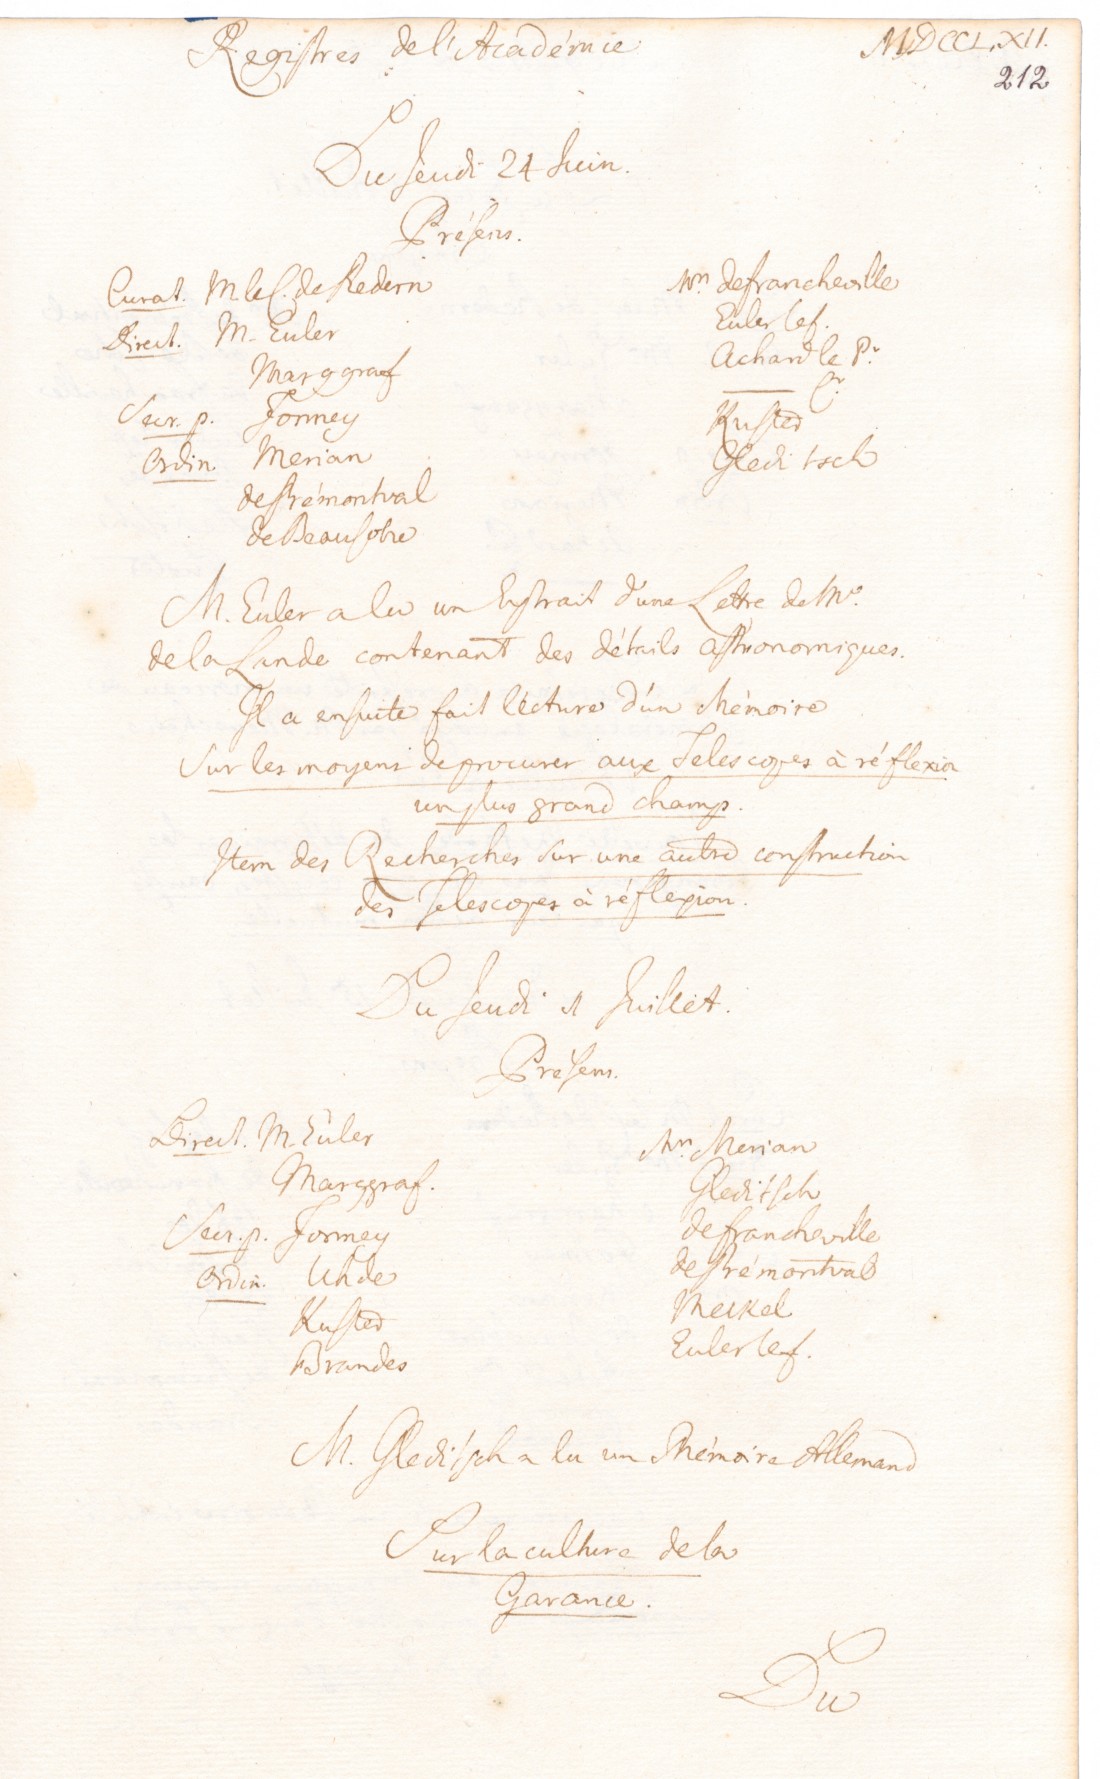 Registres de l'Académie.
MDCCLXII.
212
Du Jeudi 24 Juin.
Présens.
Curat. M. le C. de Redern
Direct. M. Euler
Marggraf
Secr. p. Formey
Ordin. Merian
de Prémontval
de Beausobre
Mrs. de Francheville
Euler le f.
Achard le Pr.
Kusted
Gleditsch
M. Euler a lu un Extrait d'une Lettre de Mr.
de la Lande contenant des détails astronomiques.
Il a ensuite fait lecture d'un Mémoire
Sur les moyens de procurer aux Telescopes à réflexion
un plus grand champ.
Item des Recherches sur une autre construction
des Telescopes à réflexion.
Du Jeudi 1 Juillet.
Présens.
Direct. M. Euler
Marggraf.
Secr. p. Formey
Ordin. Uhde
Kusted
Brandes
Mrs. Merian
Gleditsch
de Francheville
de Prémontval
Meckel
Euler le f.
M. Gleditsch a lu un Mémoire Allemand
Sur la culture de la
Garance.
Du